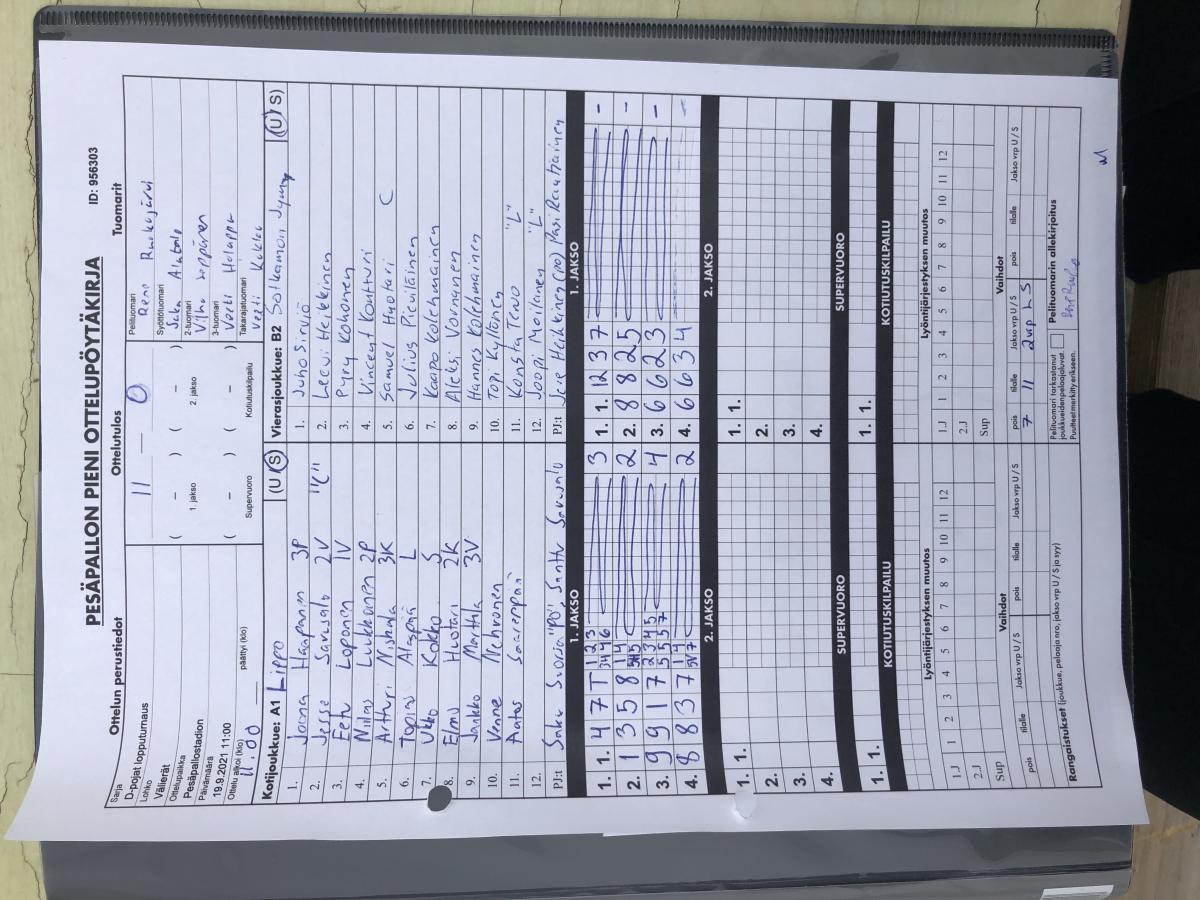 PESÄPALLON PIENI OTTELUPÖYTÄKIRJA
ID: 956303
Ottelun perustiedot
Ottelutulos
Tuomarit
Sarja
D-pojat lopputurnaus
Lohko
Välierät
Ottelupaikka
Pesäpallostadion
Päivämäärä
19.9.2021 11:00
Ottelu alkoi (klo)
päättyi (klo)
11.00
11 — 0
( – ) ( – )
1. jakso 2. jakso
( – ) ( – )
Supervuoro Kotiutuskilpailu
Pelituomari
Syöttötuomari
2-tuomari
Vilho
3-tuomari
Veeti
Takarajatuomari
Veeti
Kotijoukkue: A1 Lippo (U / S)
1. Joona Haapanen 3P
2. Jesse Sarusalo 2V "C"
3. Eetu Loponen 1V
4. Niilas Luukkonen 2P
5. Artturi Niskala 3K
6. Topias L
7. Ukko Kokko S
8. Elmo Huotari 2K
9. Jaakko Marttila 3V
10.
11. Aatos Saarenpää
12.
PJ:t Saku
Vierasjoukkue: B2 Sotkamon Jymy (U / S)
1. Juho Sirviö
2. Leevi Heikkinen
3. Pyry Kohonen
4. Vincent Kontturi
5. Samuel Huotari C
6. Julius
7. Kaapo Kolehmainen
8. Aleksi Voronen
9. Hannes Kolehmainen
10. Topi Kyllönen
11. Konsta Tervo "L"
12. Joopi Moilanen "L"
PJ:t Jere Heikkinen (pö) Pasi Rautiainen
1. JAKSO
1. JAKSO
1. 1. 4 7 T 3
2. 1 3 5 8 2
3. 9 9 1 7 4
4. 8 8 3 7 2
1. 1. 12 3 7 –
2. 8 8 2 5 –
3. 6 6 2 3 –
4. 6 6 3 4 –
2. JAKSO
2. JAKSO
1. 1.
2.
3.
4.
1. 1.
2.
3.
4.
SUPERVUORO
SUPERVUORO
1. 1.
1. 1.
KOTIUTUSKILPAILU
KOTIUTUSKILPAILU
Lyöntijärjestyksen muutos
1.J 1 2 3 4 5 6 7 8 9 10 11 12
2.J
Sup
Lyöntijärjestyksen muutos
1.J 1 2 3 4 5 6 7 8 9 10 11 12
2.J
Sup
Vaihdot
pois tilalle Jakso vrp U / S pois tilalle Jakso vrp U / S
Vaihdot
pois tilalle Jakso vrp U / S pois tilalle Jakso vrp U / S
7 11 2vp LS
Rangaistukset (joukkue, pelaaja nro, jakso vrp U / S ja syy)
Pelituomari tarkastanut
joukkueidenpelaajaluvat.
Puutteet merkitty erikseen.
Pelituomarin allekirjoitus